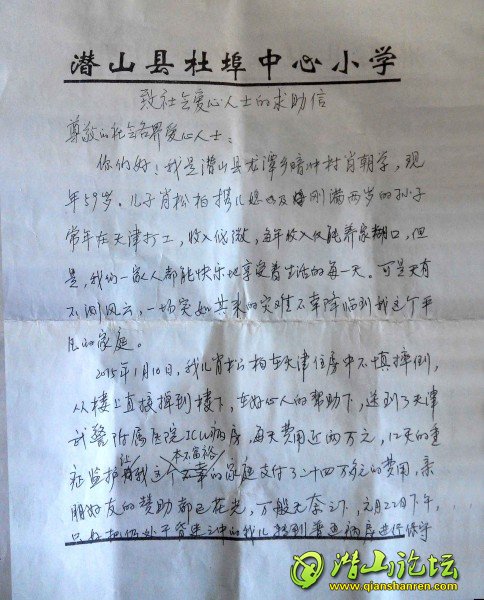 潜山县杜埠中心小学
致社会爱心人士的求助信
尊敬的社会各界爱心人士：
你们好！我是潜山县龙潭乡暗冲村肖朝学，现
年59岁。儿子肖松柏携儿媳以及刚满两岁的孙子
常年在天津打工，收入低微，每年收入仅能养家糊口，但
是，我们一家人都能快乐地享受着生活的每一天。可是天有
不测风云，一场突如其来的灾难不幸降临到我这个平
凡的家庭。
2015年1月10日，我儿肖松柏在天津住房中不慎摔倒，
从楼上直接掉到楼下，在好心人的帮助下，送到了天津
武警附属医院ICU病房，每天费用近两万元，12天的重
症监护让我这个本不富裕的家庭支付了二十四万多元的费用，亲
朋好友的赞助都已花光，万般无奈之下，元月22日下午，
只好把仍处于昏迷之中的我儿转到普通病房进行保守
潜山论坛
www.qianshanren.com